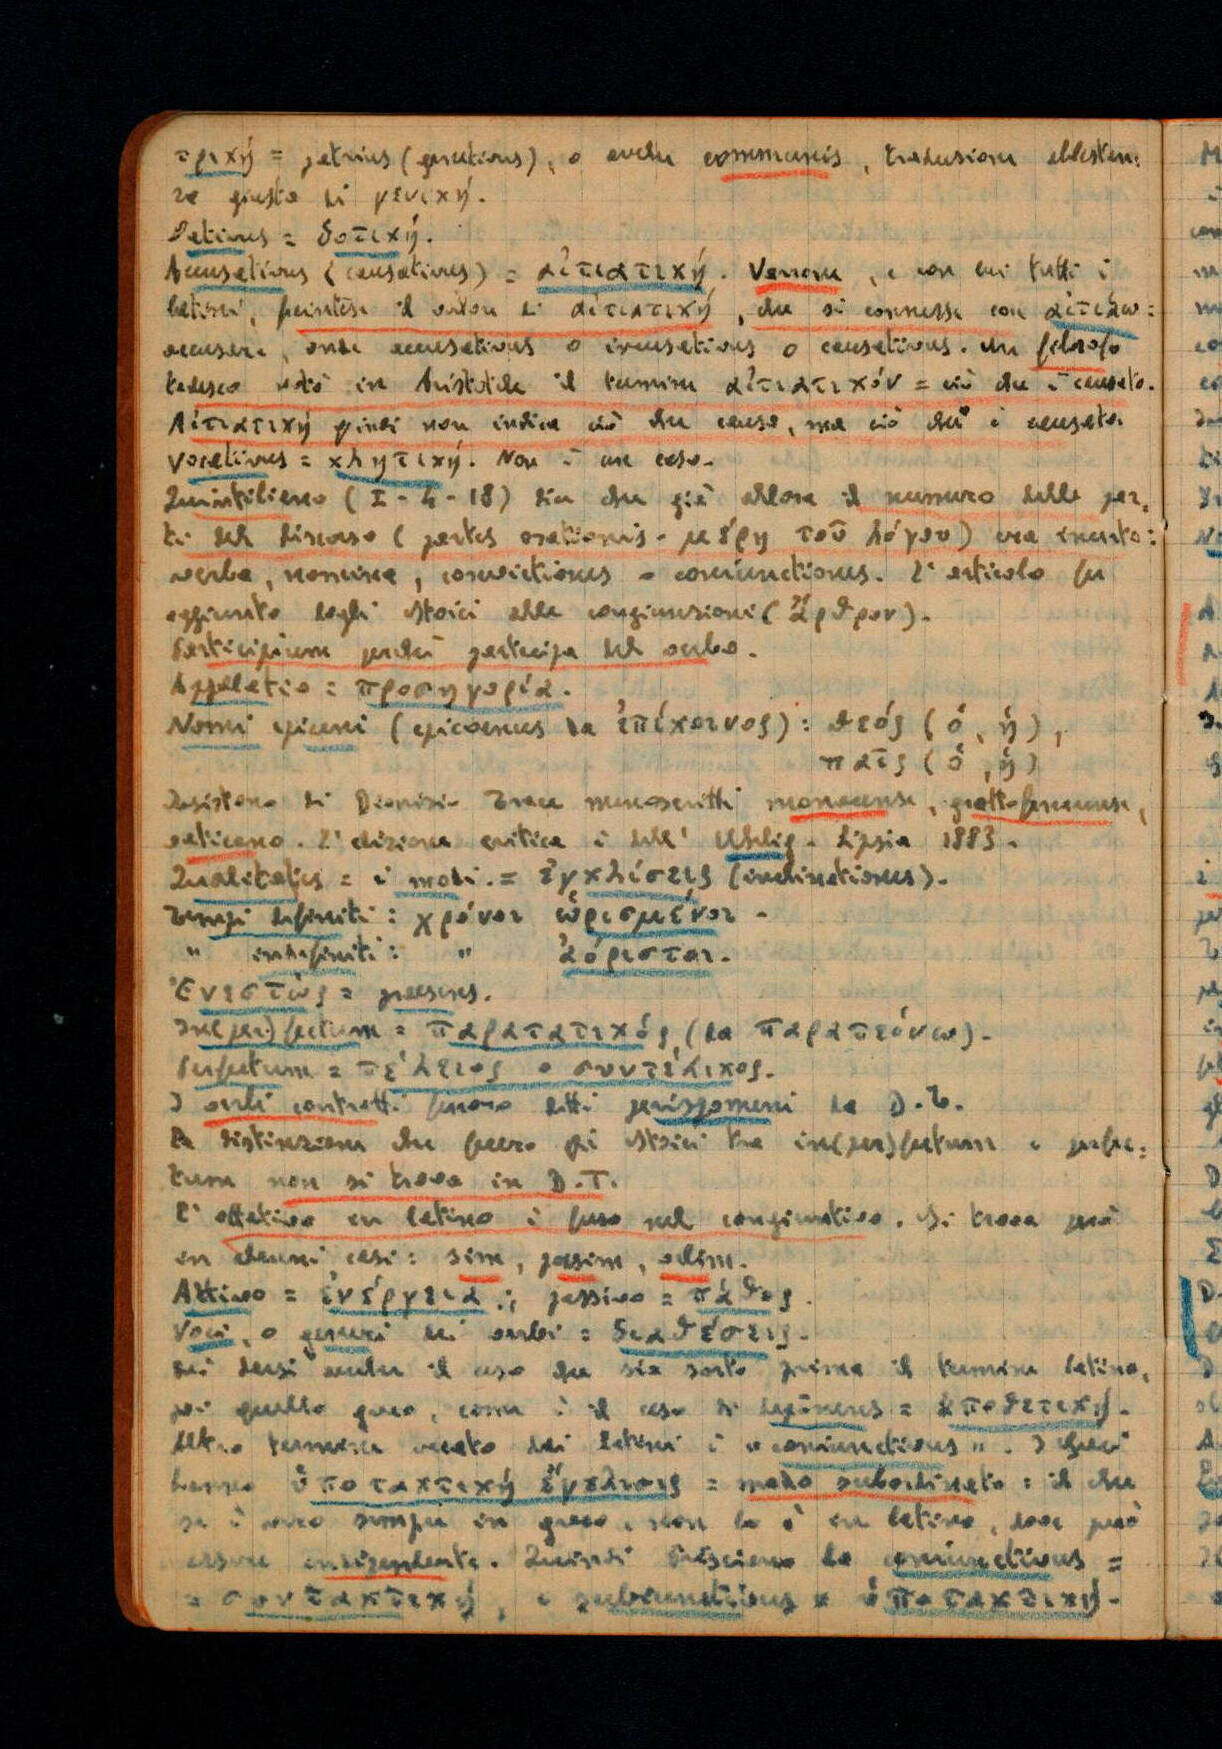 τρική = patrius (genetivus), o anche communis, traduzione abbastan:
za giusta di γενική.
Dativus = δοτική.
Accusativus (causativus) = αἰτιατική. Varrone, e con lui tutti i
latini, fraintese il valore di αἰτιατική, che si connesse con αἰτιάω:
accusare, onde accusativus o incusativus o causativus. Un filosofo
tedesco notò in Aristotele il termine αἰτιατικόν = ciò che è causato.
Αἰτιατική quindi non indica ciò che causa, ma ciò che è causato.
Vocativus = κλητική. Non è un caso.
Quintiliano (I-4-18) dice che già allora il numero delle par:
ti del discorso (partes orationis - μέρη τοῦ λόγου) era incerto:
verba, nomina, convinctiones o coniunctiones. L'articolo fu
aggiunto dagli stoici alle congiunzioni (ἄρθρον).
Participium perché partecipa del verbo.
Appellatio = προσηγορία.
Nomi epiceni (epicoenus da ἐπίκοινος): θεός (ὁ, ἡ),
παῖς (ὁ, ἡ)
Esistono di Dionisio Trace manoscritti monacense, grottaferratense,
vaticano. L'edizione critica è dell'Uhlig - Lipsia 1883.
Qualitates = i modi. = ἐγκλίσεις (inclinationes).
Tempi definiti: χρόνοι ὡρισμένοι -
" indefiniti: " ἀόριστοι.
Ἐνεστώς = praesens.
In(per)fectum = παρατατικός, (da παρατείνω).
Perfectum = τέλειος o συντέλικος.
I verbi contratti furono detti perispomeni da D.T.
La distinzione che fecero gli stoici tra in(per)fectum e perfec:
tum non si trova in D.T.
L'ottativo in latino è fuso nel congiuntivo. Si trova però
in alcuni casi: sim, possim, velim.
Attivo = ἐνέργεια; passivo = πάθος.
Voci, o generi dei verbi = διαθέσεις.
Dei darsi anche il caso che sia sorto prima il termine latino,
poi quello greco, come è il caso di deponens = ἀποθετική.
Altro termine creato dai latini è "coniunctivus". I Greci
hanno ὑποτακτική ἔγκλισις = modo subordinato: il che
se è vero sempre in greco, non lo è in latino, dove può
essere indipendente. Quindi Prisciano ha coniunctivus =
= συντακτική, e subiunctivus = ὑποτακτική.